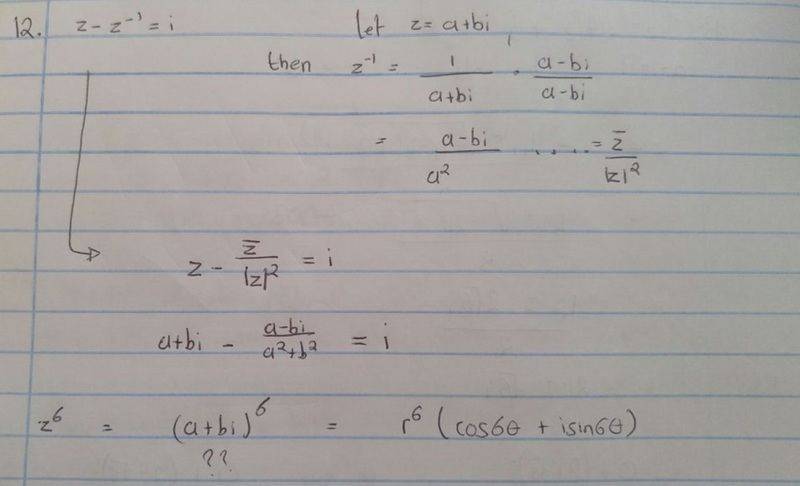 12. z - z⁻¹ = i Let z = a+bi,
then z⁻¹ = 1/(a+bi) · (a-bi)/(a-bi)
= (a-bi)/a² ..... = z̄/|z|²
z - z̄/|z|² = i
a+bi - (a-bi)/(a²+b²) = i
z⁶ = (a+bi)⁶ = r⁶ (cos6θ + isin6θ)
??